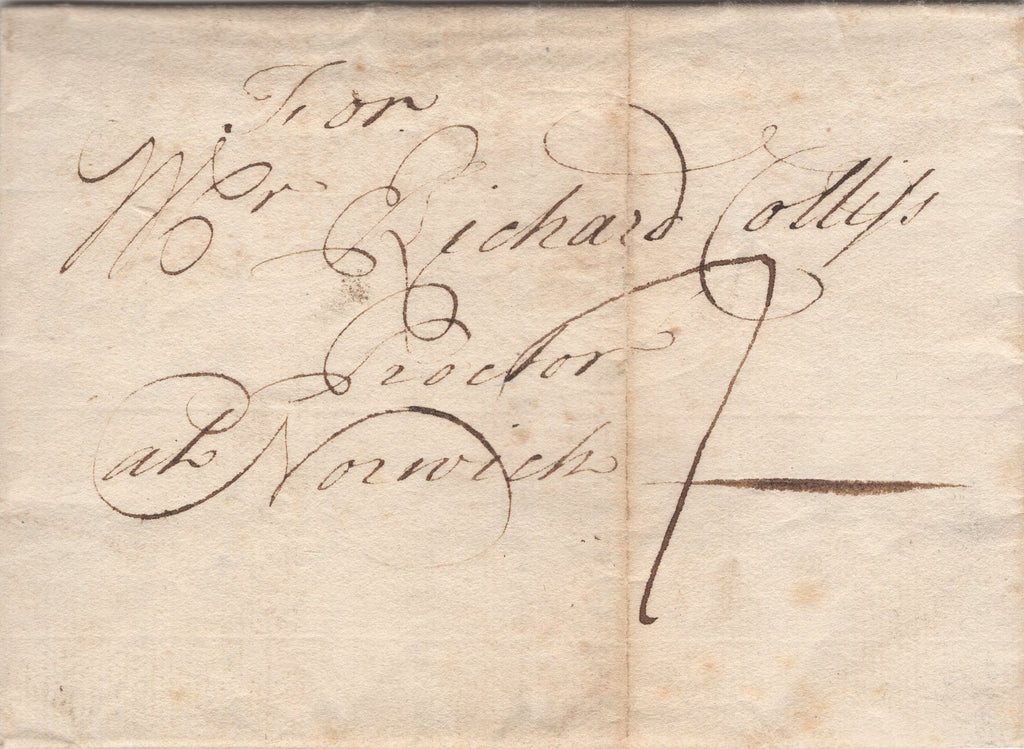 For
Mr Richard Colliſs
Proctor
at Norwich
7